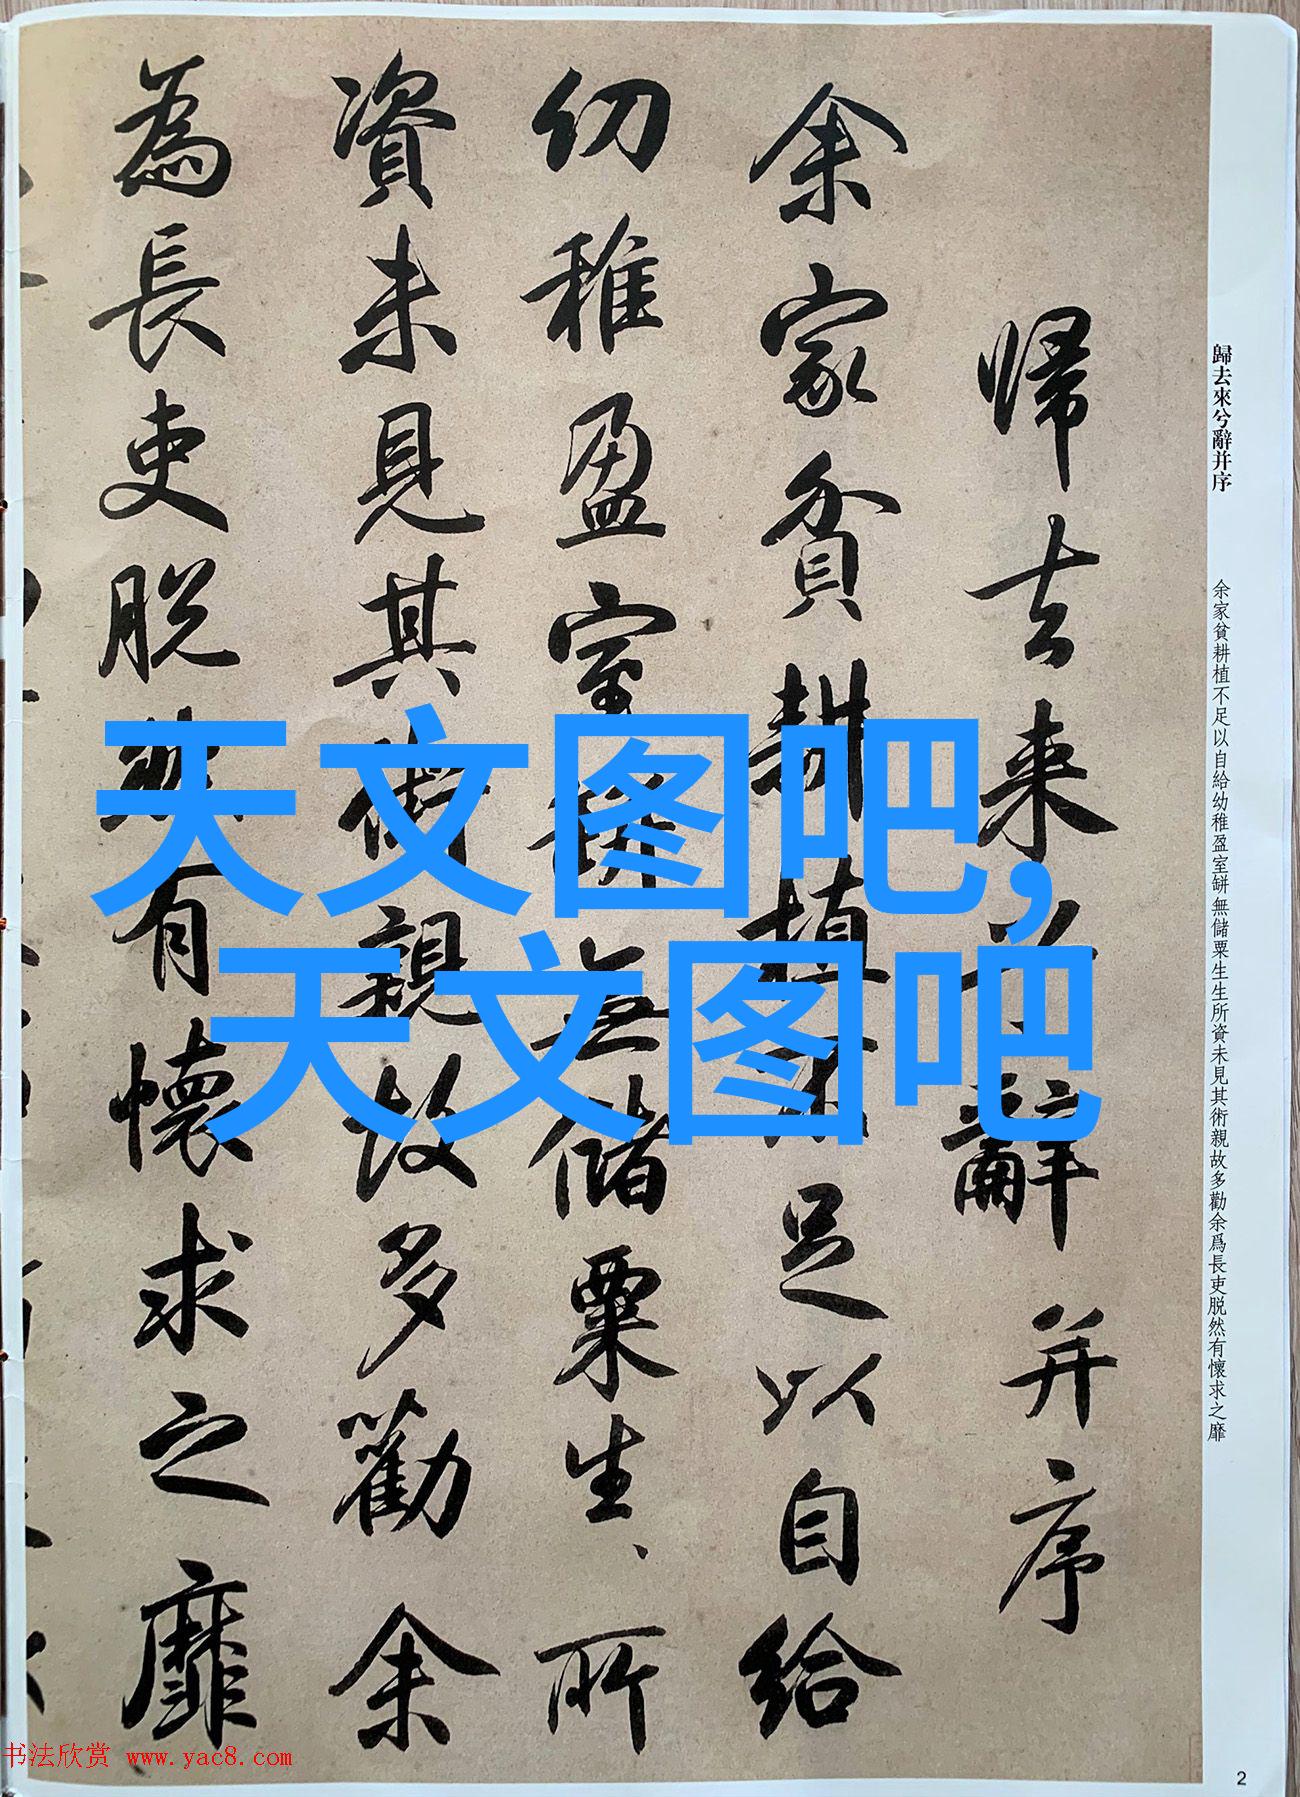 歸去來兮辭并序
余家貧耕植不足以自給幼稚盈室缾無儲粟生生所資未見其術親故多勸余爲長吏脱然有懷求之靡
歸去来兮辭并序
余家貧耕植不足以自給
幼稚盈室缾無儲粟生、所
資未見其術親故多勸余
為長吏脱然有懷求之靡
天文图吧,
天文图吧
书法欣赏 www.yac8.com
2